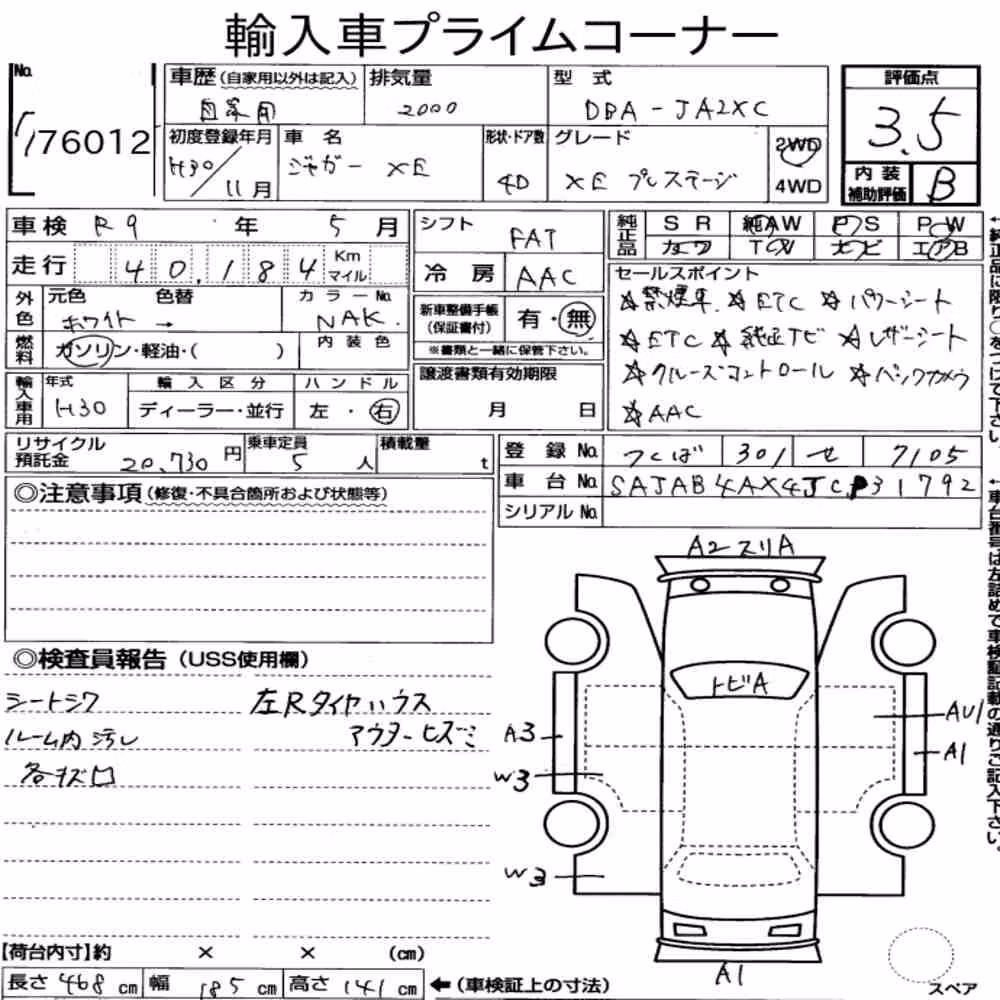 輸入車プライムコーナー
No.
76012
車歴(自家用以外は記入) 排気量 型式 評価点
自家用 2000 DBA-JA2XC 3.5
初度登録年月 車名 形状・ドア数 グレード 2WD
H30/11月 ジャガー XE 4D XE プレステージ 4WD
内装補助評価 B
車検 R9年 5月 シフト FAT
純正品 SR 純AW PS PW
カワ TV ナビ エアB
走行 40,184 Km マイル 冷房 AAC
セールスポイント
外色 元色 色替 カラーNo.
ホワイト → NAK.
新車整備手帳(保証書付) 有・無
※書類と一緒に保管下さい。
☆禁煙車 ☆ETC ☆パワーシート
☆ETC ☆純正ナビ ☆レザーシート
☆クルーズコントロール ☆バックカメラ
☆AAC
燃料 ガソリン・軽油・( ) 内装色
輸入車用 年式 輸入区分 ハンドル
H30 ディーラー・並行 左・右
譲渡書類有効期限
月 日
リサイクル預託金 20,730円 乗車定員 5人 積載量 t
登録No. つくば 301 せ 7105
車台No. SAJAB4AX4JCP31792
シリアルNo.
◎注意事項(修復・不具合箇所および状態等)
◎検査員報告(USS使用欄)
シートシワ 左Rタイヤハウス
ルーム内汚レ アウターヒズミ
各キズ凹
A2スリA
トビA
A3
W3
W3
AU1
A1
A1
スペア
【荷台内寸】約 × × (cm)
長さ 468cm 幅 185cm 高さ 141cm ←(車検証上の寸法)